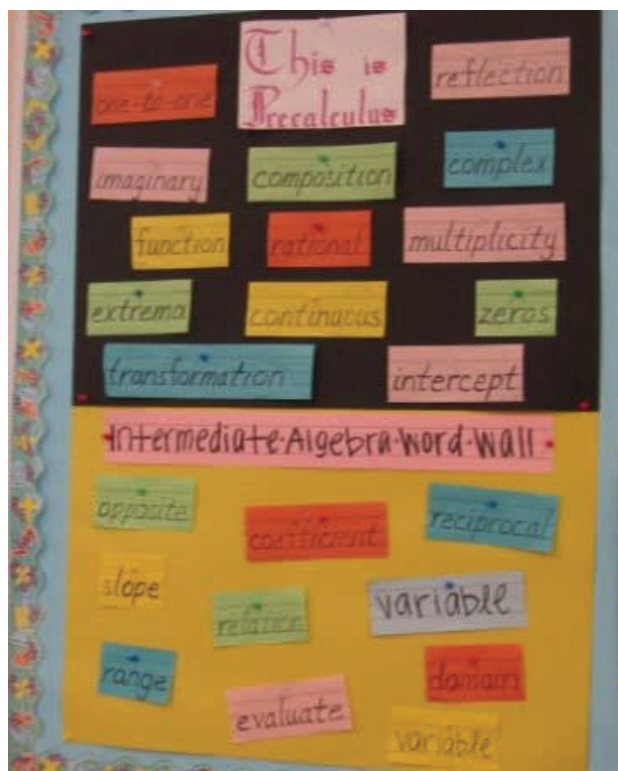 This is
Precalculus
reflection
one-to-one
imaginary
composition
complex
function
rational
multiplicity
extrema
continuous
zeros
transformation
intercept
Intermediate·Algebra·Word·Wall
opposite
coefficient
reciprocal
slope
relation
variable
range
domain
evaluate
variable